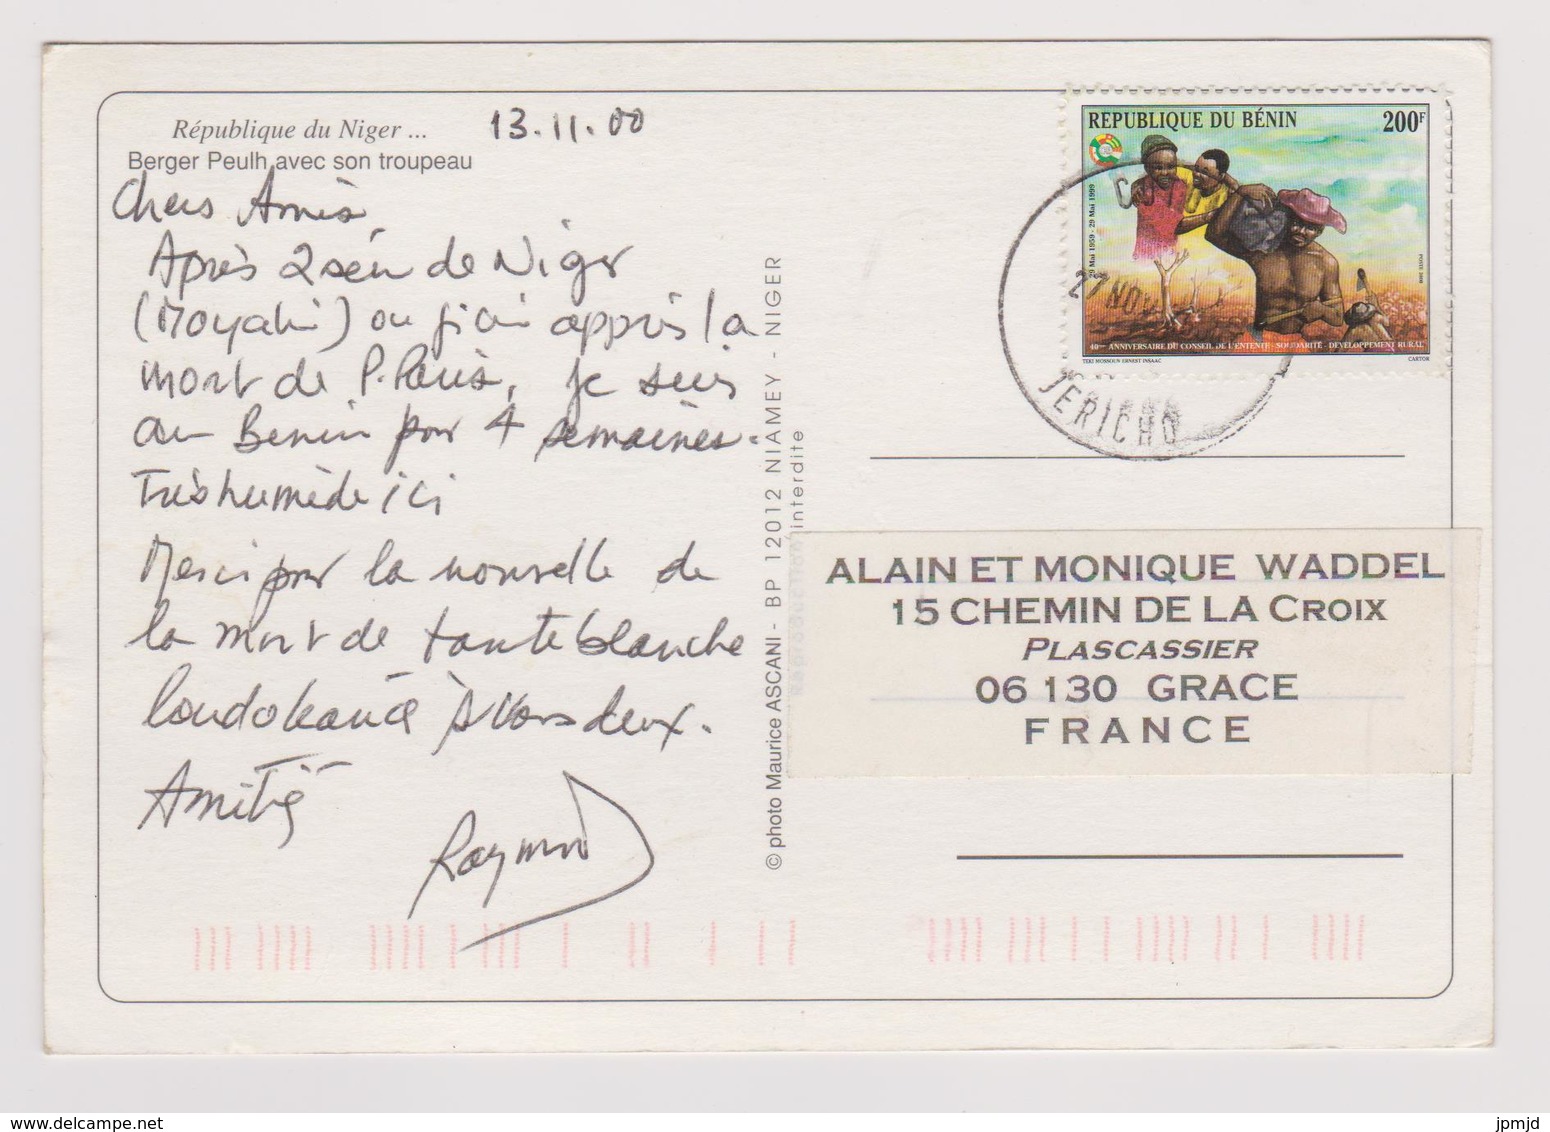 République du Niger ...
13.11.00
Berger Peulh avec son troupeau
Chers Amis
Après 2 sem de Niger
(Moyahi) ou j'ai appris la
mort de P. Paris, je suis
au Benin pour 4 semaines.
Très humide ici
Merci pour la nouvelle de
la mort de tante blanche
à vous deux.
Amitié
Raymond
© photo Maurice ASCANI - BP 12012 NIAMEY - NIGER
interdite
REPUBLIQUE DU BÉNIN 200F
29 Mai 1959 - 29 Mai 1999
POSTE 2000
40ème ANNIVERSAIRE DU CONSEIL DE L'ENTENTE : SOLIDARITÉ - DÉVELOPPEMENT RURAL
TEKI MOSSOUN ERNEST INSAAC CARTOR
27 NOV
JERICHO
ALAIN ET MONIQUE WADDEL
15 CHEMIN DE LA CROIX
PLASCASSIER
06 130 GRACE
FRANCE
jpmjd